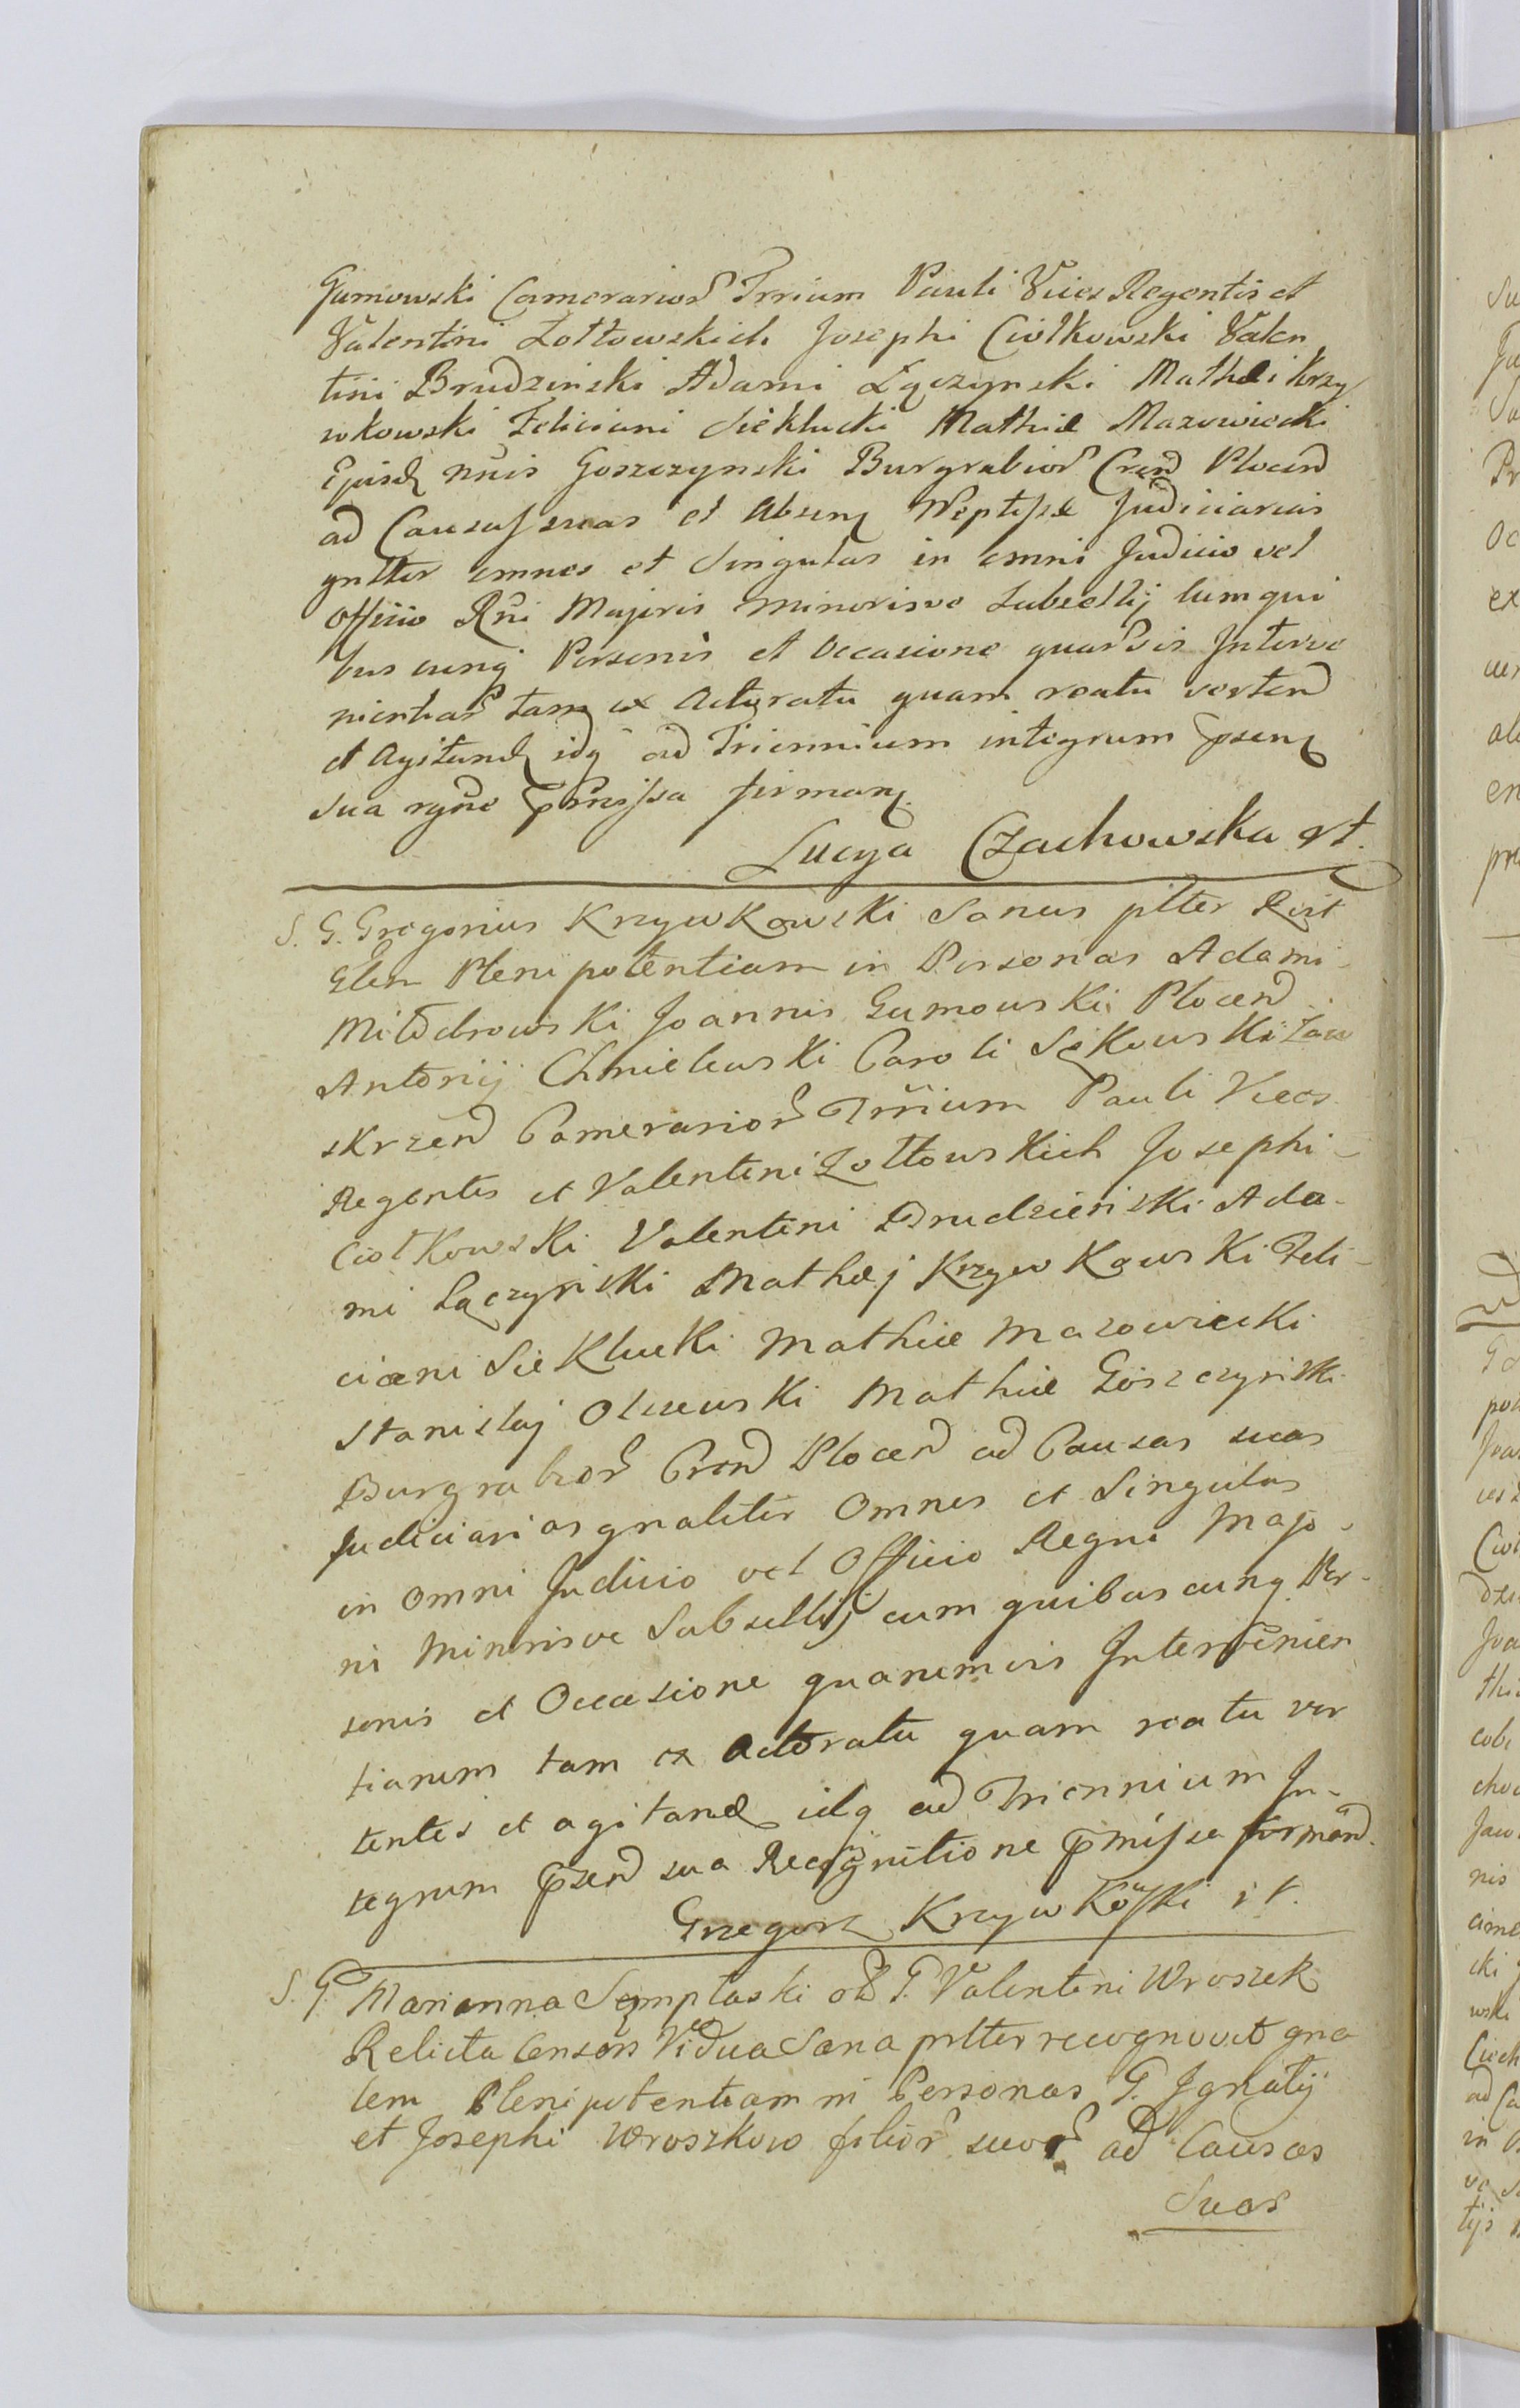 Gumowski Camerarior Trrium Pauli Vices Regentis et
Valentini Zołtowskich Josephi Ciołkowski Valen
tini Brudzinski Adami Łączynski Mathæi Krzy
wkowski Feliciani Siekłucki Mathiæ Mazowiecki
Ejusd nnis Goszczynski Burgrabior Crend Plocend
ad Causas suas et Judiciarias
gnltter omnes et Singulas in omni Judicio vel
Officio Rni Majoris minorisve Subsellij cum qui
bus cunq Personis et Occasione quarvis Interve
nientiar tam ex Actoratu quam reatu vertend
et Agitand idq ad Triennium integrum psen
sua rgne pmissa firman
Lucya Czachowska st.
S. G. Gregorius Krzywkowski Sanus pltter Rcit
Glem Plenipotentiam in Personas Adami
Milobrowski Joannis Gumowski Plocend
Antonij Chmielewski Caroli Sękowski Zaw
skrzend Camerarior Trrium Pauli Vices
Regentis et Valentini Zołtowskich Josephi
Ciołkowski Valentini Brudzieński Ada-
mi Łączyński Mathæj Krzywkowski Feli-
ciani Siekłucki Mathiæ Mazowiecki
Stanislaj Olszewski Mathiæ Goszczyński
Burgrabior Crend Plocend ad Causas suas
Judiciarias gnaliter Omnes et Singulas
in omni Judicio vel Officio Regni Majo-
ris Minorisve Subsellij cum quibuscunq Per-
sonis et Occasione quarumvis Intervenien
tiarum tam ex Actoratu quam reatu ver
tentes et agitand idq ad Triennium In-
tegrum psend sua Recognitione pmissa formand.
Grzegorz Krzywkowski st.
S. G. Marianna Sęmpłaski ol G. Valentini Wroszek
Relicta Consors Vidua Sana pltter recognovit gna
lem Plenipotentiam in Personas G. Jgnatij
et Josephi Wroszkow filior suor ad Causas
Suas